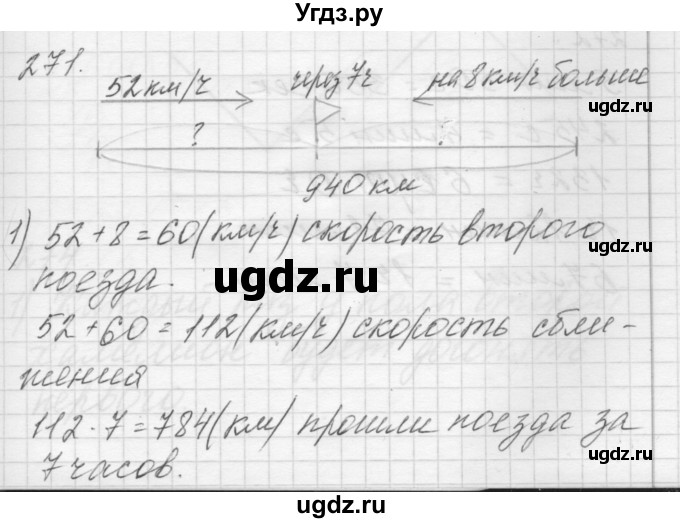 Угдз.ру
271.
52 км/ч через 7ч на 8 км/ч больше
gdz.ru
? ?
940 км
1) 52+8=60(км/ч) скорость второго
поезда.
ugdz.ru
gdz.ru
52+60=112(км/ч) скорость сбли-
жения
112·7=784(км) прошли поезда за
7 часов.
ugdz.ru
gdz.ru
ugdz.ru